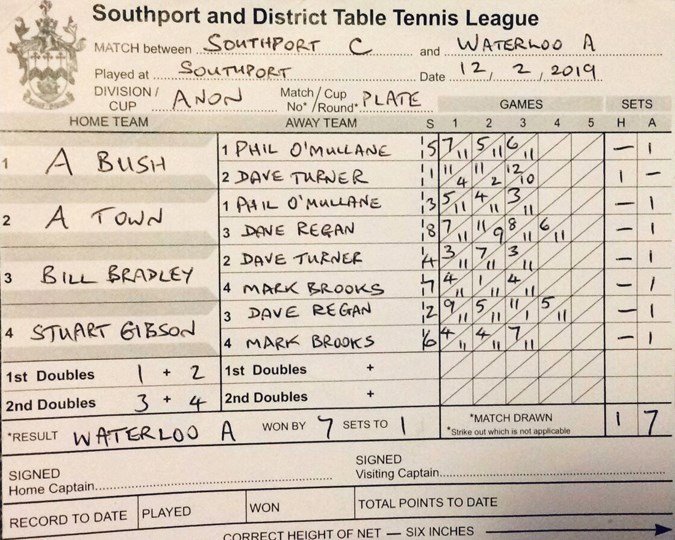 Southport and District Table Tennis League
MATCH between SOUTHPORT C and WATERLOO A
Played at SOUTHPORT Date 12, 2, 2019
DIVISION / CUP ANON Match/Cup No*/Round* PLATE GAMES SETS
HOME TEAM AWAY TEAM S 1 2 3 4 5 H A
1 A BUSH 1 PHIL O'MULLANE 5 7/11 5/11 6/11 – 1
2 DAVE TURNER 1 11/4 11/2 12/10 1 –
2 A TOWN 1 PHIL O'MULLANE 3 5/11 4/11 3/11 – 1
3 DAVE REGAN 8 7/11 11/9 8/11 6/11 – 1
3 BILL BRADLEY 2 DAVE TURNER 4 3/11 7/11 3/11 – 1
4 MARK BROOKS 7 4/11 1/11 4/11 – 1
4 STUART GIBSON 3 DAVE REGAN 2 9/11 5/11 11/1 5/11 – 1
4 MARK BROOKS 6 4/11 4/11 7/11 – 1
1st Doubles 1 + 2 1st Doubles +
2nd Doubles 3 + 4 2nd Doubles +
*RESULT WATERLOO A WON BY 7 SETS TO 1 *MATCH DRAWN 1 7
*Strike out which is not applicable
SIGNED SIGNED
Home Captain Visiting Captain
RECORD TO DATE PLAYED WON TOTAL POINTS TO DATE
CORRECT HEIGHT OF NET — SIX INCHES